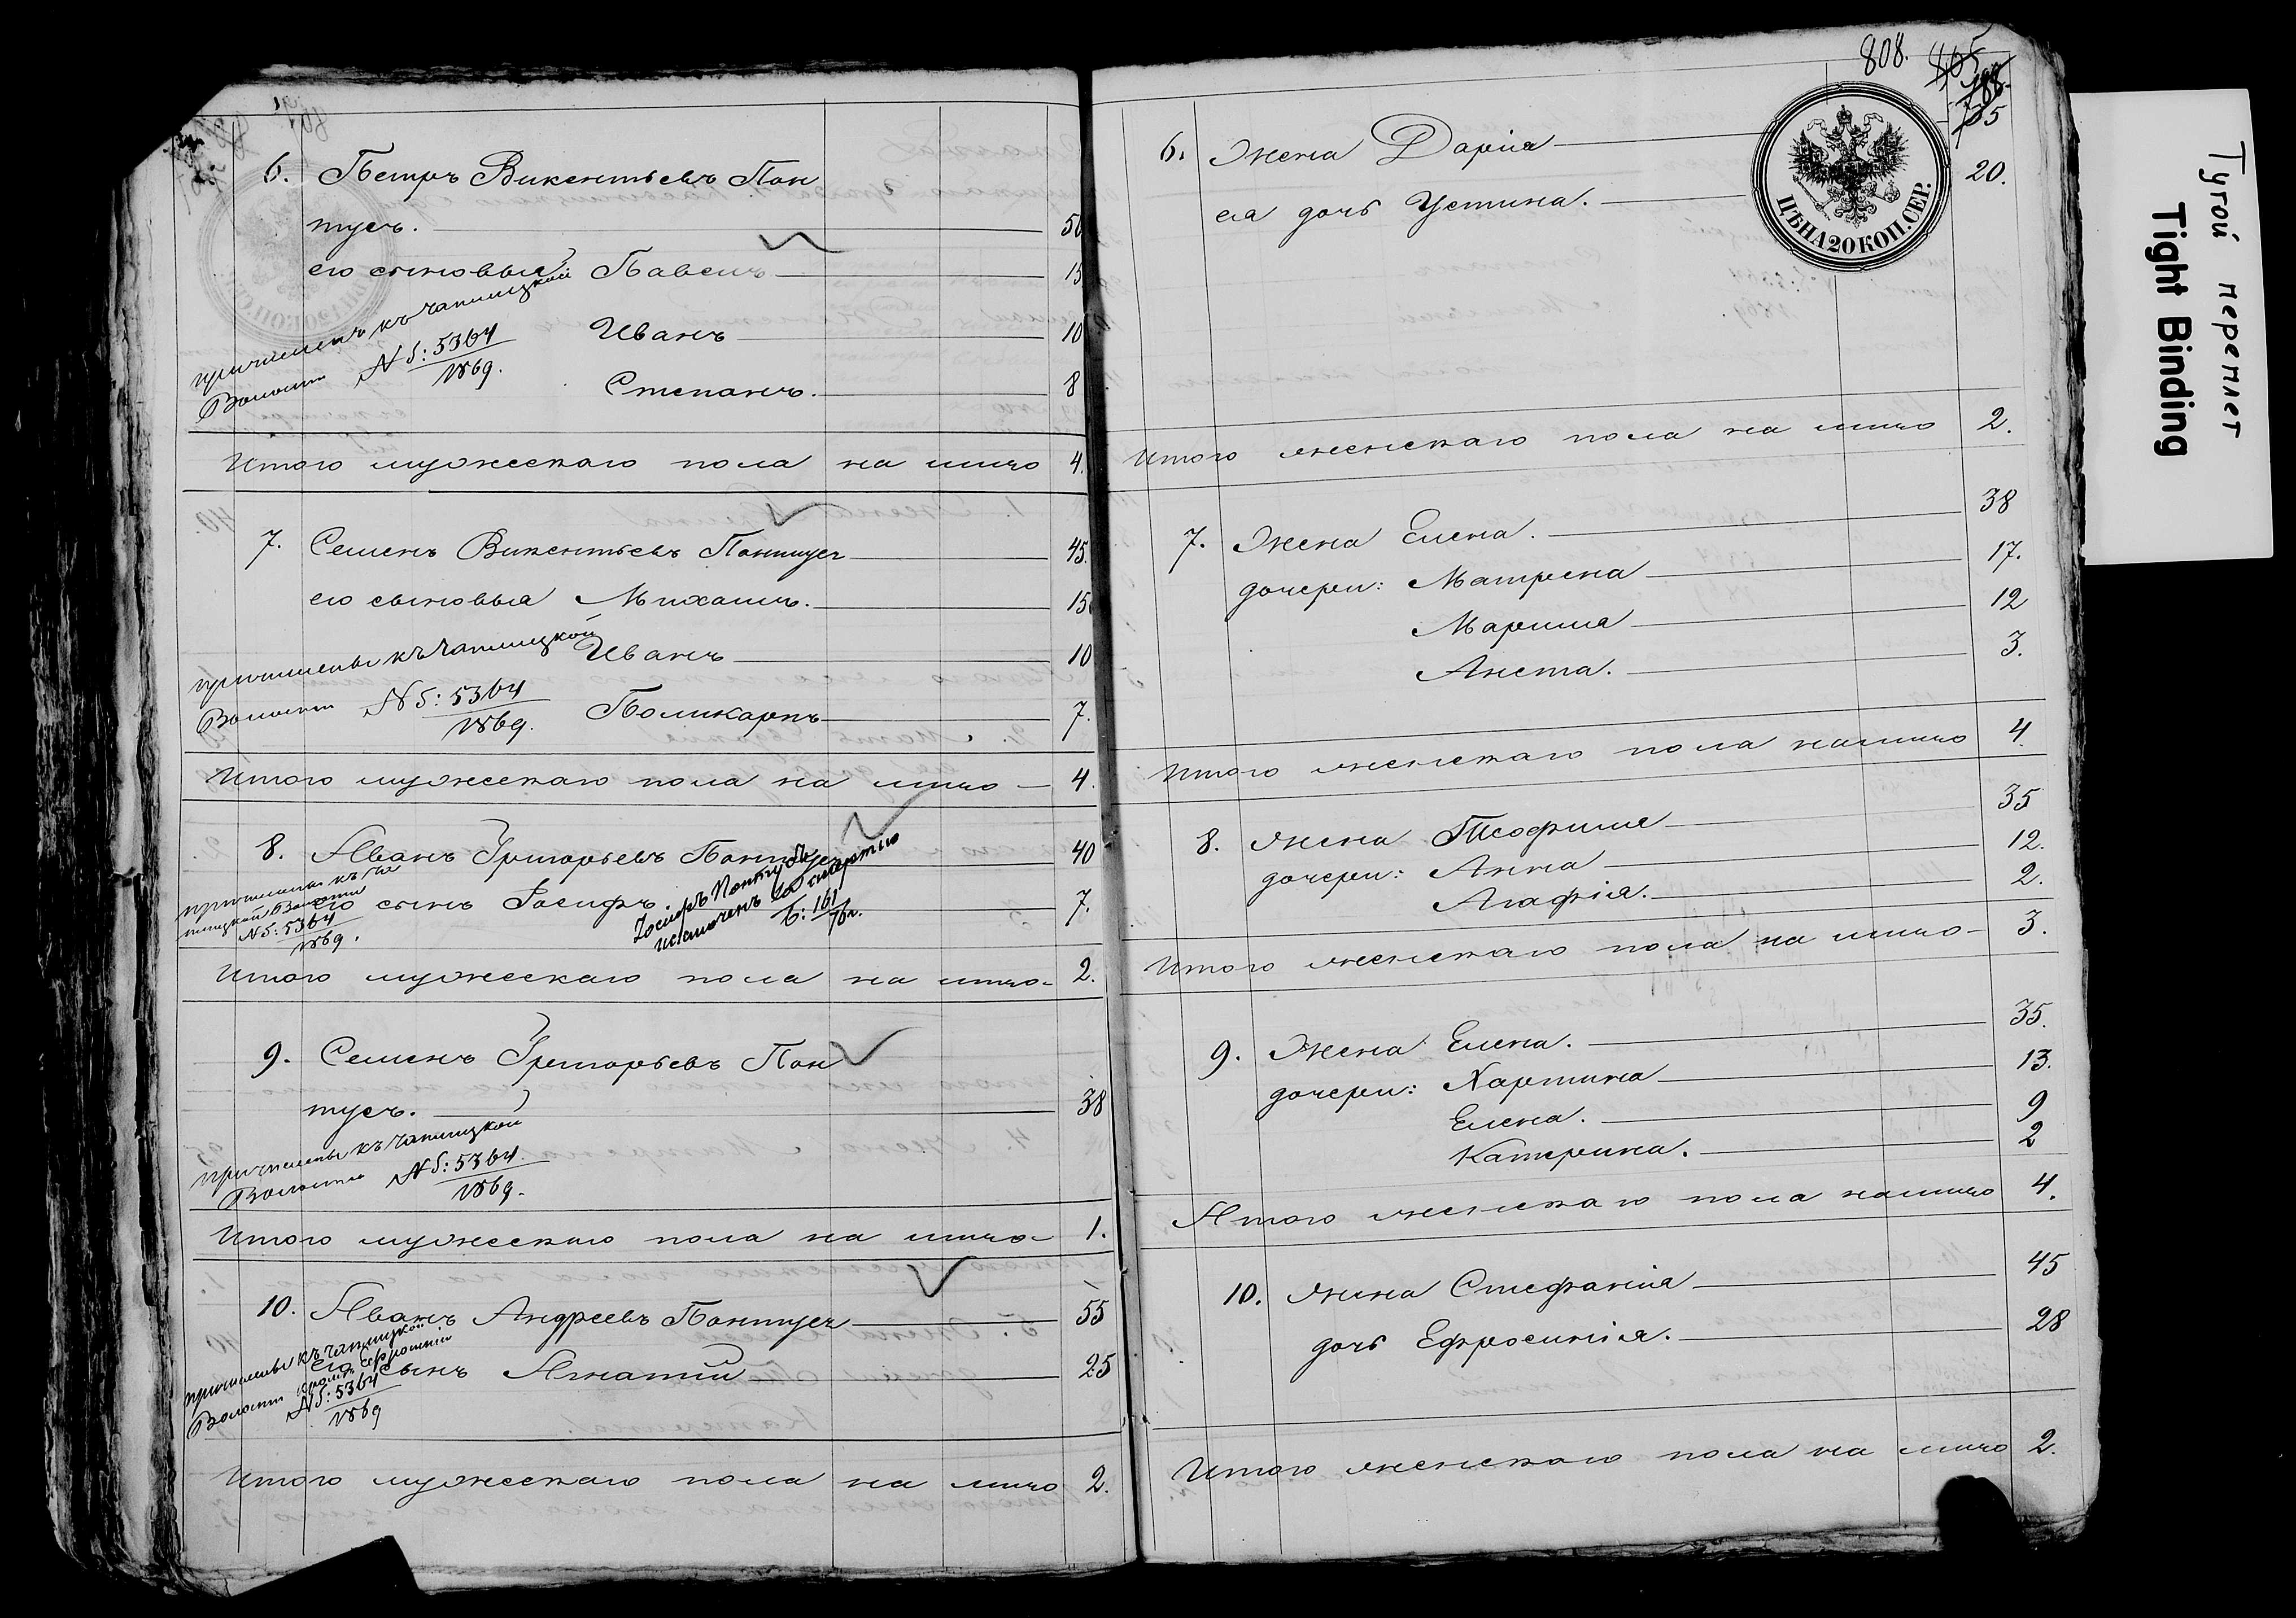 6. Петръ Викентьевъ Пон
тусъ. 50
его сыновья Павелъ 15
Иванъ 10
Степанъ. 8
причисленъ къ Чаплицкой
Волости № Б: 5364
1869.
Итого мужескаго пола на лицо 4.
7. Семенъ Викентьевъ Понтусъ 45.
его сыновья Михаилъ. 15
Иванъ 10
причислены къ Чаплицкой
Волости № Б: 5364
1869.
Поликарпъ 7.
Итого мужескаго пола на лицо 4.
8. Иванъ Григорьевъ Понтусъ 40
его сынъ Іосифъ 7.
№ Б: 5364
1869.
Іосифъ Понтусъ
исключенъ за смертью
Б: 161
Итого мужескаго пола на лицо 2.
9. Семенъ Григорьевъ Пон
тусъ. 38
причисленъ къ Чаплицкой
Волости № Б: 5364.
1869.
Итого мужескаго пола на лицо 1.
10. Иванъ Андреевъ Понтусъ 55
Его сынъ Игнатій 25
причислены къ Чаплицкой
Волости
№ Б: 5364
1869
Итого мужескаго пола на лицо 2.
808. 805
ЦѢНА 20 КОП. СЕР.
6. Жена Дарія 55
ея дочь Устина. 20.
Итого женскаго пола на лицо 2.
7. Жена Елена. 38
дочери: Матрена 17.
Марина 12
Анета. 3.
Итого женскаго пола налицо 4
8. жена Теофиля 35
дочери: Анна 12.
Агафія. 2.
Итого женскаго пола на лицо 3.
9. Жена Елена. 35.
дочери: Хартина 13.
Елена. 9
Катерина. 2
Итого женскаго пола налицо 4.
10. жена Стефанія 45
дочь Ефросинія. 28
Итого женскаго пола на лицо 2.
Тугой переплет
Tight Binding